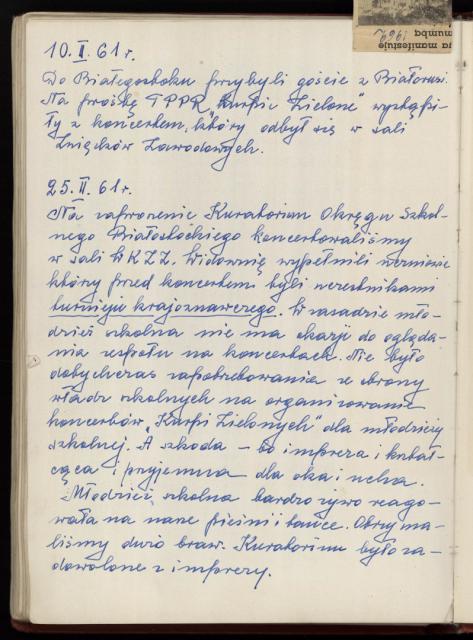 10. II. 61 r.
Do Białegostoku przybyli goście z Białorusi.
Na prośbę TPPR „Kurpie Zielone" wystąpi-
ły z koncertem, który odbył się w sali
Związków Zawodowych.
25. II. 61 r.
Na zaproszenie Kuratorium Okręgu Szkol-
nego Białostockiego koncertowaliśmy
w sali WKZZ. Widownię wypełnili uczniowie
którzy przed koncertem byli uczestnikami
turnieju krajoznawczego. W zasadzie mło-
dzież szkolna nie ma okazji do ogląda-
nia zespołu na koncertach. Nie było
dotychczas zapotrzebowania ze strony
władz szkolnych na organizowanie
koncertów „Kurpi Zielonych" dla młodzieży
szkolnej. A szkoda – bo impreza i kształ-
cąca i przyjemna dla oka i ucha.
Młodzież szkolna bardzo żywo reago-
wała na nasze pieśni i tańce. Otrzyma-
liśmy dużo braw. Kuratorium było za-
dowolone z imprezy.
ga manifestuje
mumba
1961